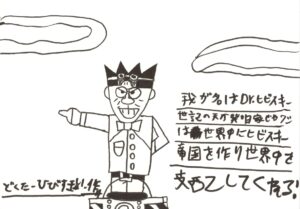 我が名はDr.ヒビスキー
世記の天才発明
は世界中にヒビスキー
帝国を作り世界中を
支配してくれるぞ!
どくたーひびすきー作